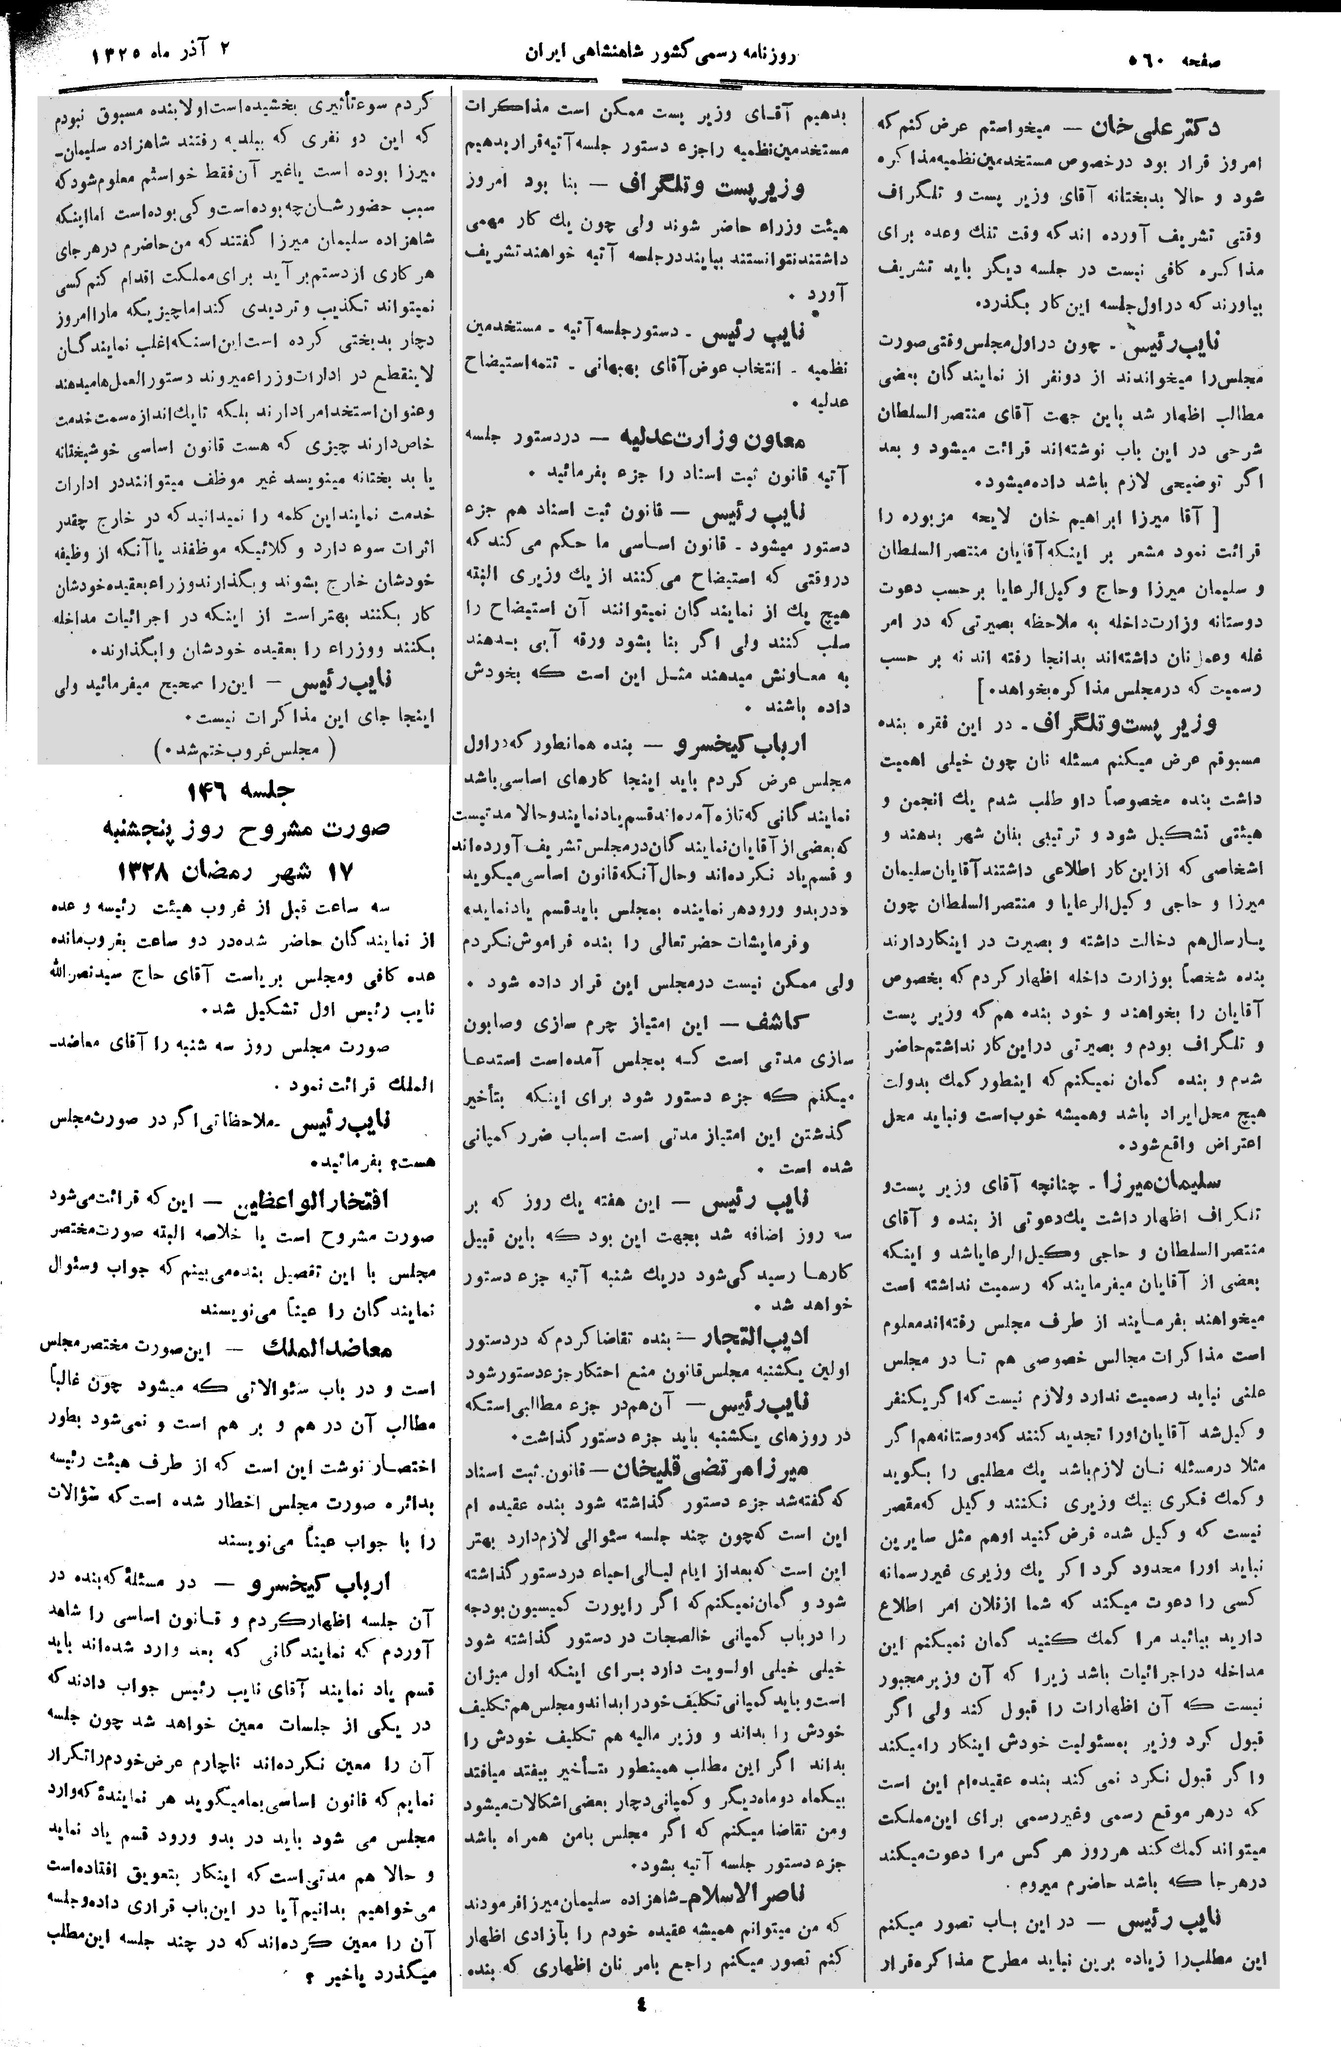 صفحه ۵۶۰
روزنامه رسمی کشور شاهنشاهی ایران
۲ آذر ماه ۱۳۲۵
دکتر علی خان – میخواستم عرض کنم که
امروز قرار بود درخصوص مستخدمین نظمیه مذاکره
شود و حالا بدبختانه آقای وزیر پست و تلگراف
وقتی تشریف آورده اند که وقت تنك وعده برای
مذاکره کافی نیست در جلسه دیگر باید تشریف
بیاورند که دراول جلسه این کار بگذرد.
نایب رئیس - چون دراول مجلس وقتی صورت
مجلس را میخواندند از دونفر از نمایندگان بعضی
مطالب اظهار شد باین جهت آقای منتصر السلطان
شرحی در این باب نوشته‌اند قرائت میشود و بعد
اگر توضیحی لازم باشد داده میشود.
[ آقا میرزا ابراهیم خان لایحه مزبوره را
قرائت نمود مشعر بر اینکه آقایان منتصر السلطان
و سلیمان میرزا وحاج وکیل الرعایا بر حسب دعوت
دوستانه وزارت داخله به ملاحظه بصیرتی که در امر
غله وعمل نان داشته‌اند بدانجا رفته اند نه بر حسب
رسمیت که درمجلس مذاکره بخواهد.]
وزیر پست و تلگراف - در این فقره بنده
مسبوقم عرض میکنم مسئله نان چون خیلی اهمیت
داشت بنده مخصوصاً داو طلب شدم یك انجمن و
هیئتی تشکیل شود و ترتیبی بنان شهر بدهند و
اشخاصی که ازاین کار اطلاعی داشتند آقایان سلیمان
میرزا و حاجی وکیل الرعایا و منتصر السلطان چون
پارسال هم دخالت داشته و بصیرت در اینکار دارند
بنده شخصاً بوزارت داخله اظهار کردم که بخصوص
آقایان را بخواهند و خود بنده هم که وزیر پست
و تلگراف بودم و بصیرتی دراین کار نداشتم حاضر
شدم و بنده گمان نمیکنم که اینطور کمك بدولت
هیچ محل ایراد باشد وهمیشه خوب است ونباید محل
اعتراض واقع شود.
سلیمان میرزا - چنانچه آقای وزیر پست و
تلگراف اظهار داشت یك دعوتی از بنده و آقای
منتصر السلطان و حاجی وکیل الرعایا شد و اینکه
بعضی از آقایان میفرمایند که رسمیت نداشته است
میخواهند بفرمایند از طرف مجلس رفته‌اند معلوم
است مذاکرات مجالس خصوصی هم تا در مجلس
علنی نیاید رسمیت ندارد ولازم نیست که اگر یکنفر
وکیل شد آقایان اورا تجدید کنند که دوستانه هم اگر
مثلا درمسئله نان لازم باشد یك مطلبی را بگوید
و کمك فکری بیك وزیری نکنند وکیل که مقصر
نیست که وکیل شده فرض کنید اوهم مثل سایرین
نباید اورا محدود کرد اگر یك وزیری غیر رسمانه
کسی را دعوت میکند که شما ازفلان امر اطلاع
دارید بیائید مرا کمك کنید گمان نمیکنم این
مداخله دراجرائیات باشد زیرا که آن وزیر مجبور
نیست که آن اظهارات را قبول کند ولی اگر
قبول کرد وزیر بمسئولیت خودش اینکار را میکند
واگر قبول نکرد نمی کند بنده عقیده‌ام این است
که درهر موقع رسمی وغیررسمی برای این مملکت
میتواند کمك کند هر روز هر کس مرا دعوت میکند
درهر جا که باشد حاضرم میروم .
نایب رئیس – در این باب تصور میکنم
این مطلب را زیاده برین نباید مطرح مذاکره قرار
بدهیم آقای وزیر پست ممکن است مذاکرات
مستخدمین نظمیه را جزء دستور جلسه آتیه قرار بدهیم
وزیر پست و تلگراف – بنا بود امروز
هیئت وزراء حاضر شوند ولی چون یك کار مهمی
داشتند نتوانستند بیایند درجلسه آتیه خواهند تشریف
آورد .
نایب رئیس - دستور جلسه آتیه - مستخدمین
نظمیه - انتخاب عوض آقای بهبهانی - تتمه استیضاح
عدلیه .
معاون وزارت عدلیه – دردستور جلسه
آتیه قانون ثبت اسناد را جزء بفرمائید .
نایب رئیس – قانون ثبت اسناد هم جزء
دستور میشود - قانون اساسی ما حکم می کند که
دروقتی که استیضاح می‌کنند از یك وزیری البته
هیچ یك از نمایندگان نمیتوانند آن استیضاح را
سلب کنند ولی اگر بنا بشود ورقه آبی بدهند
به معاونش میدهند مثل این است که بخودش
داده باشند .
ارباب کیخسرو – بنده همانطور که در اول
مجلس عرض کردم باید اینجا کارهای اساسی باشد
نمایندگانی که تازه آمده‌اند قسم یاد نمایند وحالا مدتیست
که بعضی از آقایان نمایندگان در مجلس تشریف آورده‌اند
و قسم یاد نکرده‌اند وحال آنکه قانون اساسی میگوید
«در بدو ورود هر نماینده بمجلس باید قسم یاد نماید»
وفرمایشات حضرتعالی را بنده فراموش نکردم
ولی ممکن نیست درمجلس این قرار داده شود .
کاشف – این امتیاز چرم سازی وصابون
سازی مدتی است که بمجلس آمده است استدعا
میکنم که جزء دستور شود برای اینکه بتأخیر
گذشتن این امتیاز مدتی است اسباب ضرر کمپانی
شده است .
نایب رئیس – این هفته یك روز که بر
سه روز اضافه شد بجهت این بود که باین قبیل
کارها رسیدگی شود دریك شنبه آتیه جزء دستور
خواهد شد .
ادیب التجار – بنده تقاضا کردم که دردستور
اولین یکشنبه مجلس قانون منع احتکار جزء دستور شود
نایب رئیس – آن هم در جزء مطالبی استکه
در روزهای یکشنبه باید جزء دستور گذاشت.
میرزا مرتضی قلیخان – قانون ثبت اسناد
که گفته شد جزء دستور گذاشته شود بنده عقیده ام
این است که چون چند جلسه سئوالی لازم دارد بهتر
این است که بعد از ایام لیالی احیاء در دستور گذاشته
شود و گمان نمیکنم که اگر راپورت کمیسیون بودجه
را در باب کمپانی خالصجات در دستور گذاشته شود
خیلی خیلی اولویت دارد برای اینکه اول میزان
است و باید کمپانی تکلیف خود را بداند و مجلس هم تکلیف
خودش را بداند و وزیر مالیه هم تکلیف خودش را
بداند اگر این مطلب همینطور بتأخیر بیفتد میافتد
بیکماه دوماه دیگر و کمپانی دچار بعضی اشکالات میشود
ومن تقاضا میکنم که اگر مجلس بامن همراه باشد
جزء دستور جلسه آتیه بشود.
ناصر الاسلام - شاهزاده سلیمان میرزا فرمودند
که من میتوانم همیشه عقیده خودم را بآزادی اظهار
کنم تصور میکنم راجع بامر نان اظهاری که بنده
کردم سوء تأثیری بخشیده است اولا بنده مسبوق نبودم
که این دو نفری که ببلدیه رفتند شاهزاده سلیمان-
میرزا بوده است یا غیر آن فقط خواستم معلوم شود که
سبب حضورشان چه بوده است و کی بوده است اما اینکه
شاهزاده سلیمان میرزا گفتند که من حاضرم درهرجای
هر کاری از دستم بر آید برای مملکت اقدام کنم کسی
نمیتواند تکذیب و تردیدی کند اما چیزیکه ما را امروز
دچار بدبختی کرده است این استکه اغلب نمایندگان
لاینقطع در ادارات وزراء میروند دستور العمل ها میدهند
و عنوان استخدام را دارند بلکه تایك اندازه سمت خدمت
خاص دارند چیزی که هست قانون اساسی خوشبختانه
یا بد بختانه مینویسد غیر موظف میتوانند در ادارات
خدمت نمایند این کلمه را نمیدانید که در خارج چقدر
اثرات سوء دارد و کلائیکه موظفند یا آنکه از وظیفه
خودشان خارج بشوند و بگذارند وزراء بعقیده خودشان
کار بکنند بهتر است از اینکه در اجرائیات مداخله
بکنند ووزراء را بعقیده خودشان واگذارند.
نایب رئیس – این را صحیح میفرمائید ولی
اینجا جای این مذاکرات نیست.
( مجلس غروب ختم شد.)
جلسه ۱۴۶
صورت مشروح روز پنجشنبه
۱۷ شهر رمضان ۱۳۲۸
سه ساعت قبل از غروب هیئت رئیسه و عده
از نمایندگان حاضر شده در دو ساعت بغروب مانده
عده کافی ومجلس بریاست آقای حاج سید نصر الله
نایب رئیس اول تشکیل شد.
صورت مجلس روز سه شنبه را آقای معاضد-
الملك قرائت نمود .
نایب رئیس - ملاحظاتی اگر در صورت مجلس
هست؟ بفرمائید.
افتخار الواعظین – این که قرائت می‌شود
صورت مشروح است یا خلاصه البته صورت مختصر
مجلس با این تفصیل بنده می‌بینم که جواب وسئوال
نمایندگان را عیناً می‌نویسند
معاضد الملك – این صورت مختصر مجلس
است و در باب سئوالاتی که میشود چون غالباً
مطالب آن در هم و بر هم است و نمی‌شود بطور
اختصار نوشت این است که از طرف هیئت رئیسه
بدائره صورت مجلس اخطار شده است که سؤالات
را با جواب عیناً می‌نویسند
ارباب کیخسرو – در مسئلهٔ که بنده در
آن جلسه اظهار کردم و قانون اساسی را شاهد
آوردم که نمایندگانی که بعد وارد شده‌اند باید
قسم یاد نمایند آقای نایب رئیس جواب دادند که
در یکی از جلسات معین خواهد شد چون جلسه
آن را معین نکرده‌اند ناچارم عرض خودم را تکرار
نمایم که قانون اساسی بما میگوید هر نمایندهٔ که وارد
مجلس می شود باید در بدو ورود قسم یاد نماید
و حالا هم مدتی است که اینکار بتعویق افتاده است
می‌خواهیم بدانیم آیا در این باب قراری داده و جلسه
آن را معین کرده‌اند که در چند جلسه این مطلب
میگذرد یا خیر ؟
٤